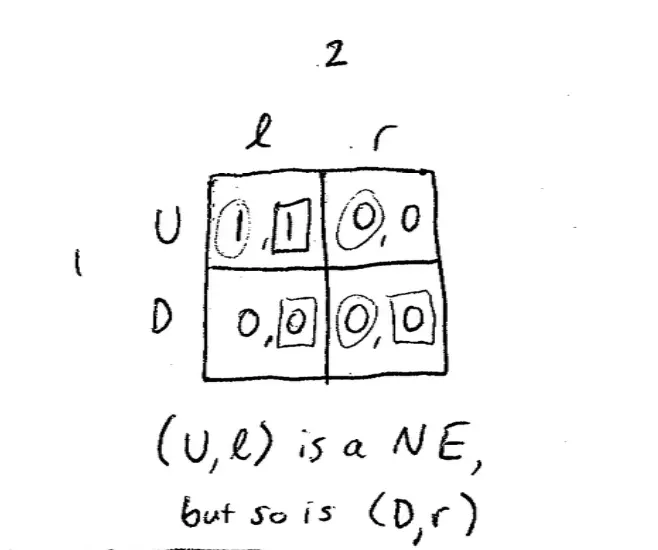 2
l r
U 1,1 0,0
1
D 0,0 0,0
(U,l) is a NE,
but so is (D,r)